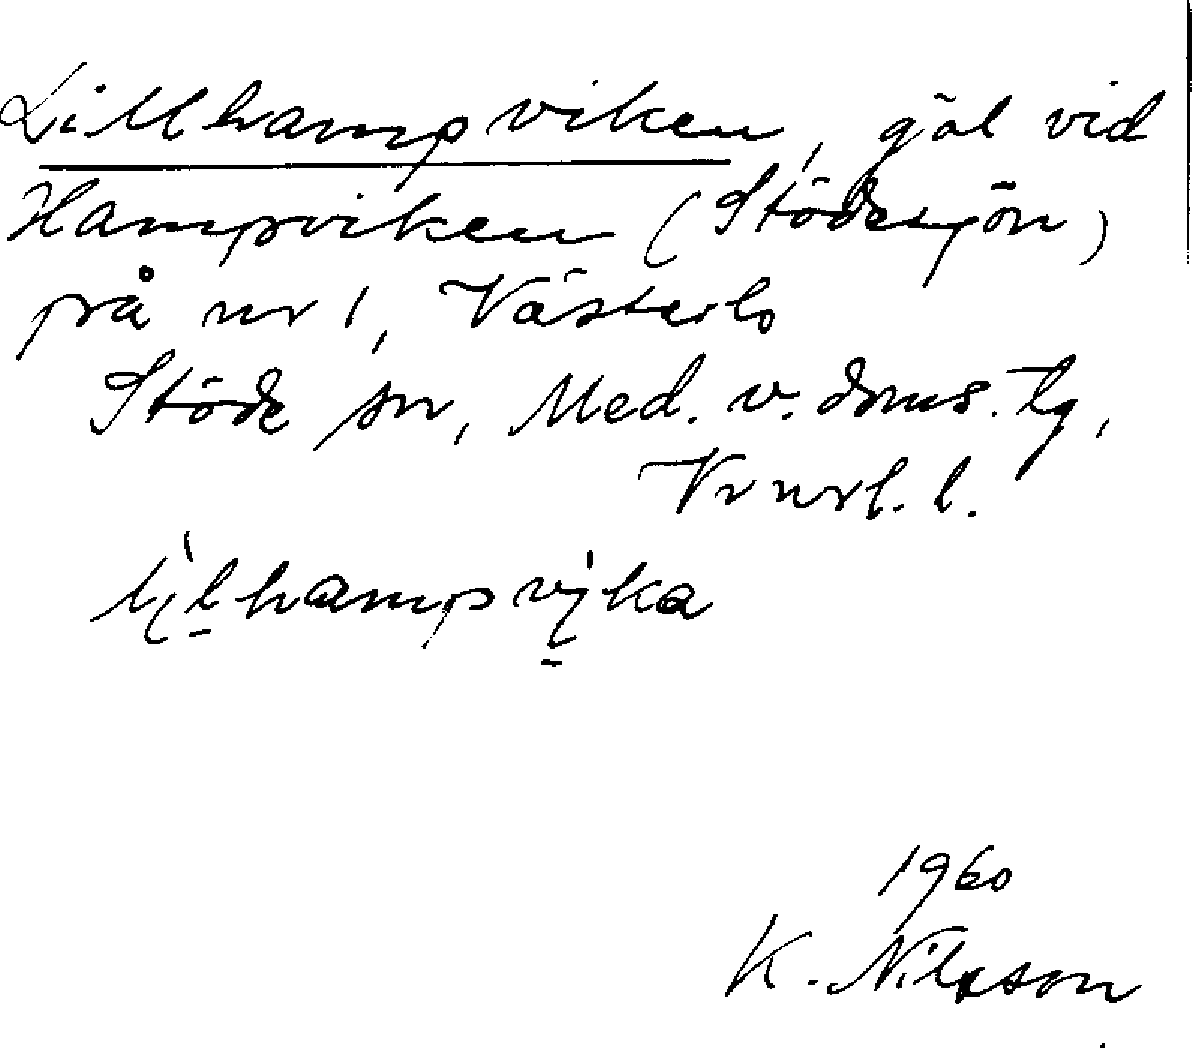 Lillhampviken, göl vid
Hampviken (Stödesjön)
på nr 1, Västerlo
Stöde sn, Med. v. doms. tg,
Vrnrl. l.
lįl̠hampvįka
1960
K. Nilsson